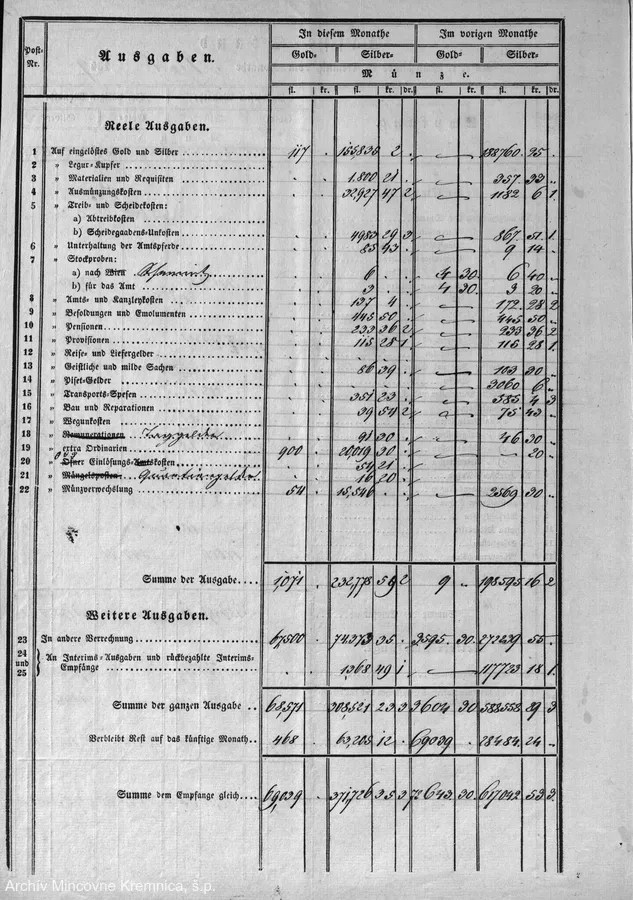 Post-Nr. Ausgaben. In diesem Monathe Im vorigen Monathe
Gold- Silber- Gold- Silber-
Münze.
fl. kr. fl. kr. dr. fl. kr. fl. kr. dr.
Reele Ausgaben.
1 Auf eingelöstes Gold und Silber 117 . 155835 2 188760 25
2 „ Legur-Kupfer
3 „ Materialien und Requisiten 1.800 21 357 33
4 „ Ausmünzungskosten 32,927 47 2 1182 6 1
5 „ Treib- und Scheidekosten:
a) Abtreibkosten
b) Scheidegaadens-Unkosten 4983 29 3 867 51 1
6 „ Unterhaltung der Amtspferde 85 43 9 14
7 „ Stockproben:
a) nach Wien 6 4 30 6 40
b) für das Amt 3 4 30 3 20
8 „ Amts- und Kanzleykosten 137 4 172 28 2
9 „ Besoldungen und Emolumenten 445 50 445 50
10 „ Pensionen 233 36 2 233 36 2
11 „ Provisionen 115 28 1 115 28 1
12 „ Reise- und Liefergelder
13 „ Geistliche und milde Sachen 86 39 103 30
14 „ Piset-Gelder 3060 6
15 „ Transports-Spesen 351 23 385 4 3
16 „ Bau und Reparationen 39 54 2 75 43
17 „ Wegunkosten
18 „ Remunerationen Taggelder 91 30 46 30
19 „ extra Ordinarien 900 20,019 30 20
20 „ Einlösungs-Amtskosten 54 21
21 „ Mängelsposten Quartiergelder 16 20
22 „ Münzverwechslung 54 15,546 2569 30
Summe der Ausgabe 1,071 232,778 59 2 9 198595 16 2
Weitere Ausgaben.
23 In andere Verrechnung 67,500 74373 35 3595 30 272239 55
24 und 25 An Interims-Ausgaben und rückbezahlte Interims-
Empfänge 1368 49 1 117723 18 1
Summe der ganzen Ausgabe 68,571 308,521 23 3 3604 30 588558 29 3
Verbleibt Rest auf das künftige Monath 468 63,205 12 69039 28484 24
Summe dem Empfange gleich 69,039 371,726 35 3 72643 30 617042 53 3
Archív Mincovne Kremnica, š.p.